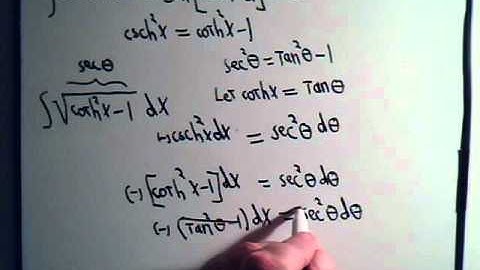 csch²x = coth²x-1
secθ
sec²θ = Tan²θ-1
∫√coth²x-1 dx
Let cothx = Tanθ
(-)csch²xdx = sec²θ dθ
(-)[coth²x-1]dx = sec²θ dθ
(-)(Tan²θ-1)dx = sec²θ dθ